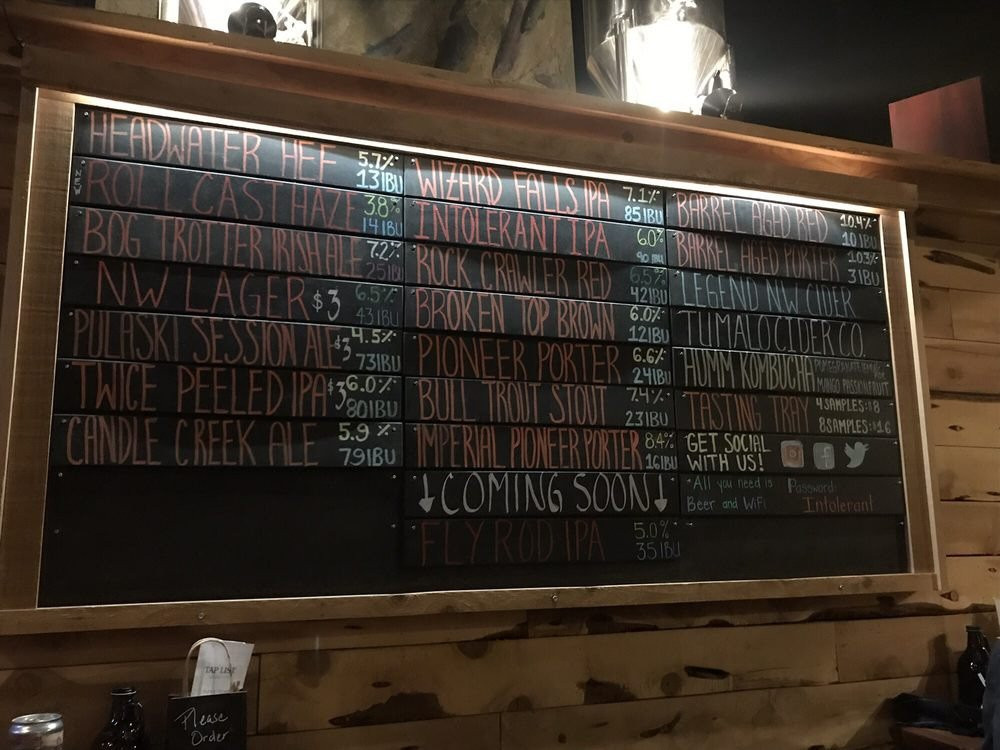 HEADWATER HEF 5.7%
13IBU
NEW ROLL CAST HAZE 3.8%
14IBU
BOG TROTTER IRISH ALE 7.2%
25IBU
NW LAGER $3 6.5%
43IBU
PULASKI SESSION ALE $3 4.5%
73IBU
TWICE PEELED IPA $3 6.0%
80IBU
CANDLE CREEK ALE 5.9%
79IBU
WIZARD FALLS IPA 7.1%
85IBU
INTOLERANT IPA 6.0%
90 IBU
ROCK CRAWLER RED 6.5%
42IBU
BROKEN TOP BROWN 6.0%
12IBU
PIONEER PORTER 6.6%
24IBU
BULL TROUT STOUT 7.4%
23IBU
IMPERIAL PIONEER PORTER 8.4%
16IBU
↓COMING SOON↓
FLY ROD IPA 5.0%
35IBU
BARREL AGED RED 10.4%
101BU
BARREL AGED PORTER 10.3%
31BU
LEGEND NW CIDER
TUMALO CIDER CO.
HUMM KOMBUCHA
MANGO PASSIONFRUIT
TASTING TRAY 4SAMPLES:$8
8SAMPLES:$16
GET SOCIAL
WITH US!
All you need is
Beer and WiFi
Password:
Intolerant
TAP LIST
Please
Order